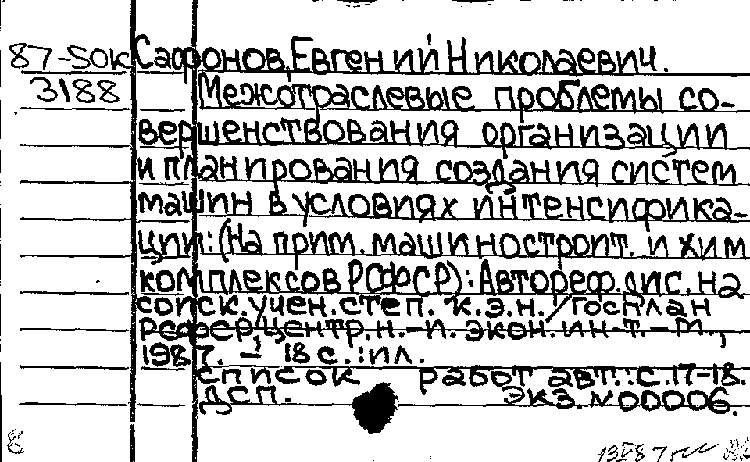 87-50к Сафронов, Евгений Николаевич.
3188 Межотраслевые проблемы со-
вершенствования организации
и планирования создания систем
машин в условиях интенсифика-
ции: (На прим. машиностроит. и хим
комплексов РСФСР): Автореф. дис. на
соиск. учен. степ. к.э.н. / Госплан
РСФСР, Центр. н.-и. экон. ин-т. - М.,
1987. - 18 с.: ил.
Список работ авт.: с. 17-18.
ДСП. Экз. N 00006.